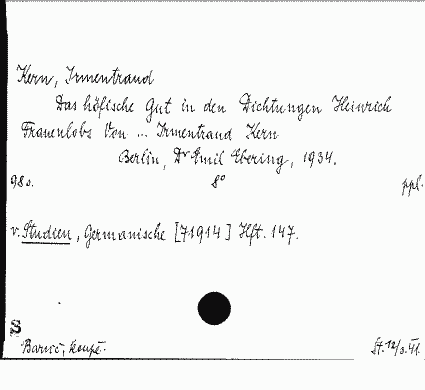 Kern, Irmentraud
Das höfische Gut in den Dichtungen Heinrich
Frauenlobs Von ... Irmentraud Kern
Berlin, Dr Emil Ebering, 1934.
98 s. 8° ppl.
v. Studien, Germanische [71914] Hft. 147.
S
Barvič, koupě. St. 12/3.41.